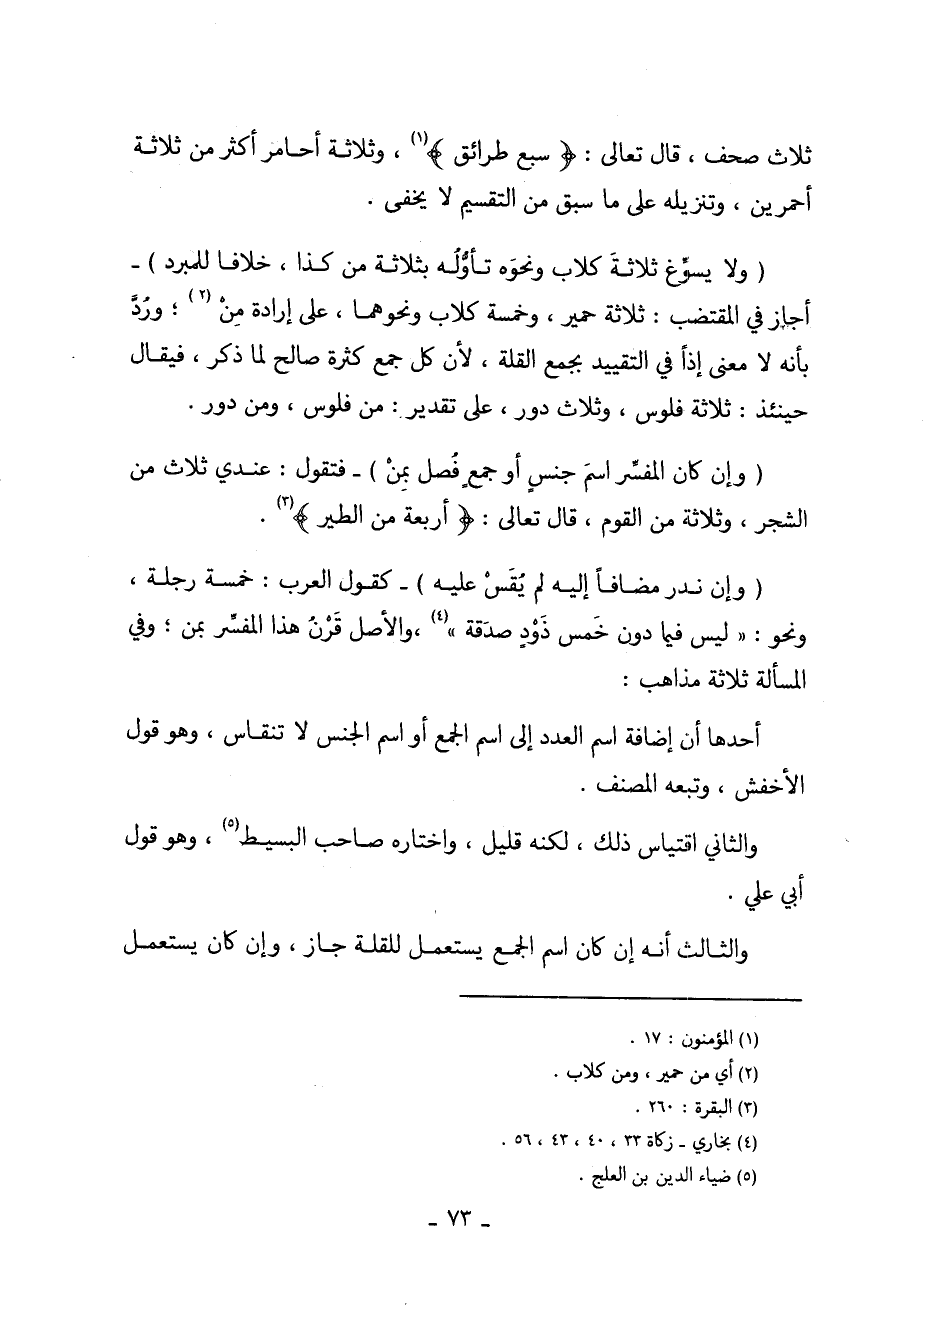 ثلاث صحف ، قال تعالى : ﴿ سبع طرائق ﴾(١) ، وثلاثة أحامر أكثر من ثلاثة
أحمرين ، وتنزيله على ما سبق من التقسيم لا يخفى .
( ولا يسوِّغ ثلاثةَ كلاب ونحوَه تأوُّلُه بثلاثة من كذا ، خلافا للمبرد ) ـ
أجاز في المقتضب : ثلاثة حمير ، وخمسة كلاب ونحوهما ، على إرادة مِنْ(٢) ؛ ورُدَّ
بأنه لا معنى إذاً في التقييد بجمع القلة ، لأن كل جمع كثرة صالح لما ذكر ، فيقال
حينئذ : ثلاثة فلوس ، وثلاث دور ، على تقدير : من فلوس ، ومن دور .
( وإن كان المفسِّر اسمَ جنسٍ أو جمعٍ فُصل بمِنْ ) ـ فتقول : عندي ثلاث من
الشجر ، وثلاثة من القوم ، قال تعالى : ﴿ أربعة من الطير ﴾(٣) .
( وإن ندر مضافاً إليه لم يُقَسْ عليه ) ـ كقول العرب : خمسة رجلة ،
ونحو : « ليس فيما دون خَمس ذَوْدٍ صدَقة »(٤) ،والأصل قَرْنُ هذا المفسِّر بمن ؛ وفي
المسألة ثلاثة مذاهب :
أحدها أن إضافة اسم العدد إلى اسم الجمع أو اسم الجنس لا تنقاس ، وهو قول
الأخفش ، وتبعه المصنف .
والثاني اقتياس ذلك ، لكنه قليل ، واختاره صاحب البسيط(٥) ، وهو قول
أبي علي .
والثالث أنه إن كان اسم الجمع يستعمل للقلة جاز ، وإن كان يستعمل
(١) المؤمنون : ١٧ .
(٢) أي من حمير ، ومن كلاب .
(٣) البقرة : ٢٦٠ .
(٤) بخاري ـ زكاة ٣٣ ، ٤٠ ، ٤٣ ، ٥٦ .
(٥) ضياء الدين بن العلج .
ـ ٧٣ ـ